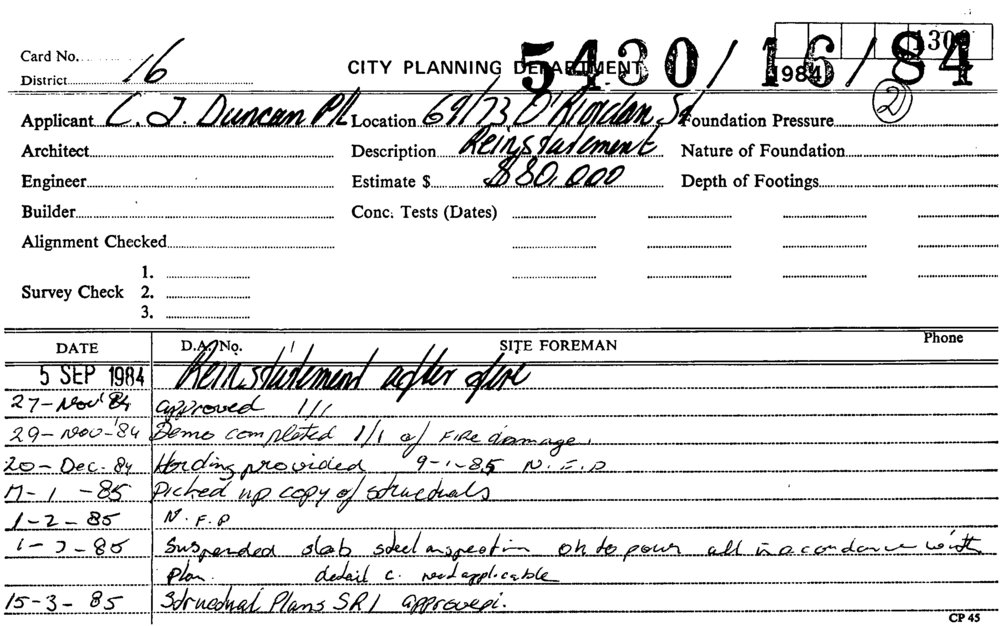 Card No.
District 16
CITY PLANNING DEPARTMENT
5430/16/84
1984
130
2
Applicant C. J. Duncan P/L Location 69/73 O'Riordan St Foundation Pressure
Architect Description Reinstatement Nature of Foundation
Engineer Estimate $ $80,000 Depth of Footings
Builder Conc. Tests (Dates)
Alignment Checked
1.
Survey Check 2.
3.
DATE D.A. No. SITE FOREMAN Phone
5 SEP 1984 Reinstatement after fire
27-Nov'84 approved 1/1
29-Nov-'84 Demo completed 1/1 of FIRe damage.
20-Dec. 84 Hording provided 9-1-85 N.F.P
-1-85 Picked up copy of structurals
1-2-85 N.F.P
1-3-85 Suspended slab steel inspection ok to pour all in accordance with
plan. detail c. applicable
15-3-85 Structural Plans SR1 approved.
CP 45